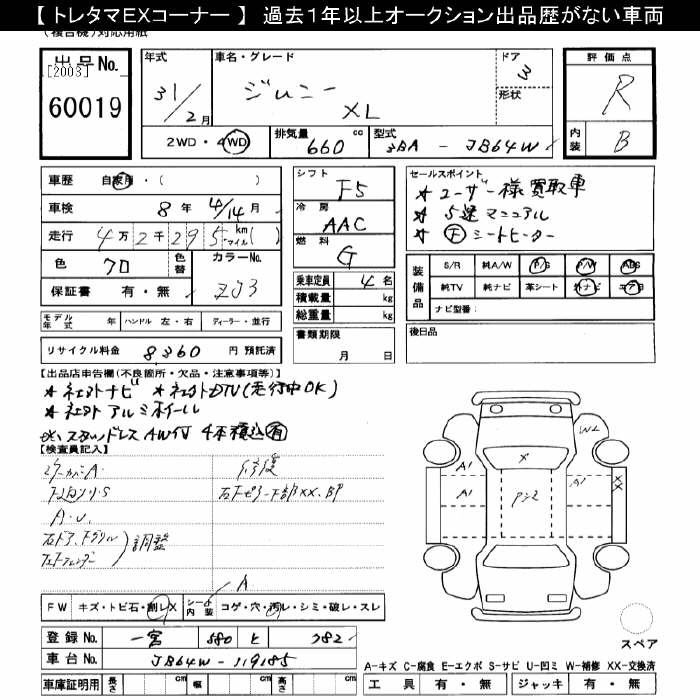 【 トレタマEXコーナー 】 過去1年以上オークション出品歴がない車両
(複合機)対応用紙
出品No.
[2003]
60019
年式
31/2月
車名・グレード
ジムニー
XL
ドア
3
形状
2WD・4WD
排気量
660 cc
型式
3BA - JB64W
評価点
R
内装
B
車歴 自家用・( )
車検 8年 4/14月
走行 4万2千295km マイル( )
色 クロ
色替
カラーNo.
ZJ3
保証書 有・無
モデル年式 年 ハンドル 左・右 ディーラー・並行
リサイクル料金 8,360 円 預託済
シフト
F5
冷房
AAC
燃料
G
乗車定員 4名
積載量 kg
総重量 kg
書類期限
月 日
セールスポイント
★ユーザー様買取車
★5速マニュアル
★Ⓕシートヒーター
装備品
S/R 純A/W P/S P/W ABS
純TV 純ナビ 革シート 外ナビ エアB
ナビ型番:
後日品
【出品店申告欄(不良箇所・欠品・注意事項等)】
★社外ナビ ★社外DTV(走行中OK)
★社外アルミホイール
スタッドレスAW付 4本積込有
【検査員記入】
A・U
調整
修復
右F ピラー下部XX、BP
A
FW キズ・トビ石・割レX
シート内装 コゲ・穴・汚レ・シミ・破レ・スレ
登録No. 一宮 580 と 382
車台No. JB64W-119185
車庫証明用 長さ cm 幅 cm 高さ cm
X
A1
A1
A1
W2
XX
スペア
A-キズ C-腐食 E-エクボ S-サビ U-凹ミ W-補修 XX-交換済
工具 有・無 ジャッキ 有・無